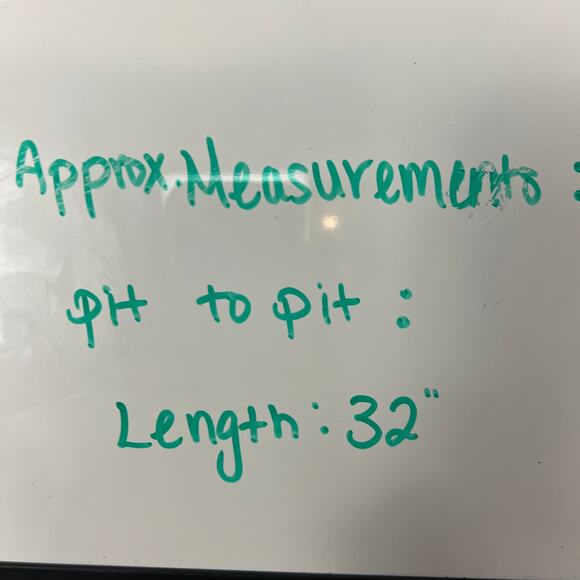 Approx. Measurements :
pit to pit :
Length : 32"